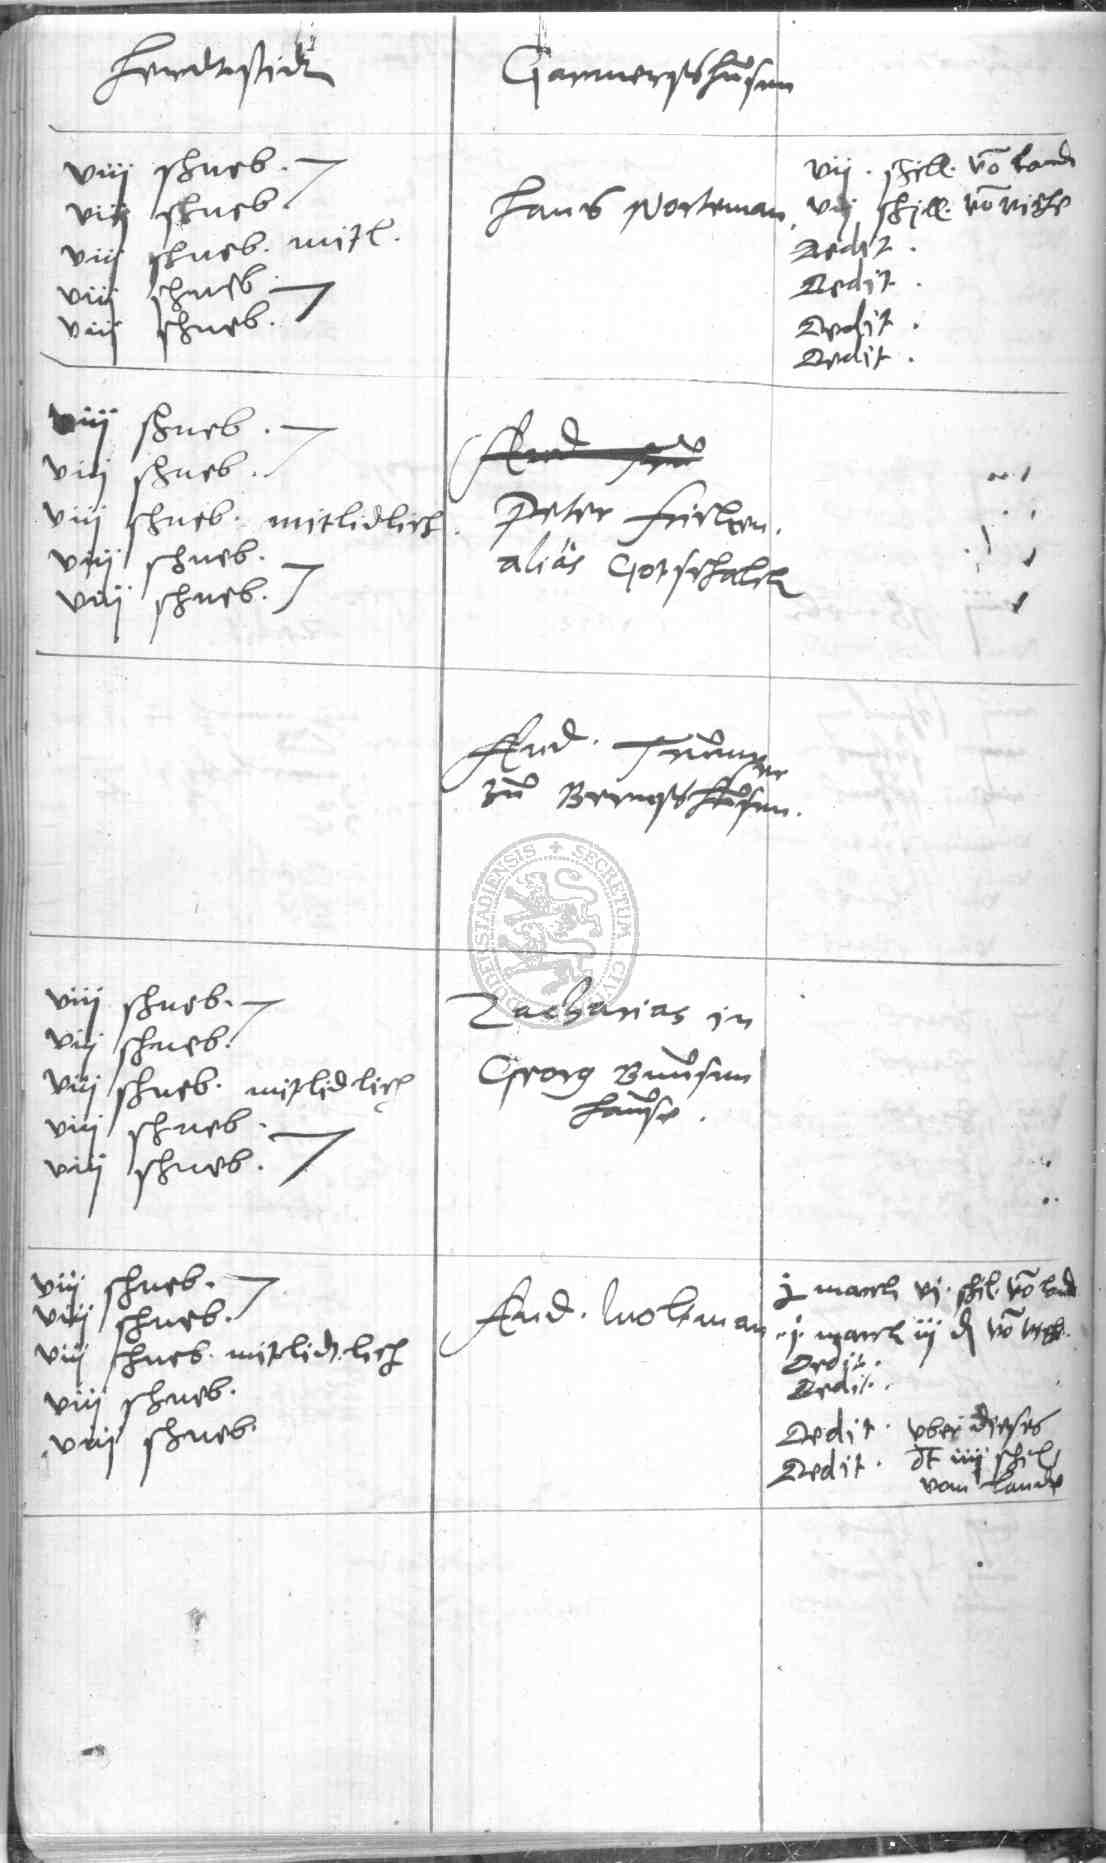 Herdtstidt
Garmergshusen
viij schneb.
viij schneb.
viij schneb. mitl.
viij schneb.
viij schneb.
Hans Norteman
vij. schill. vō Land
vij schill. vō
Dedit.
Dedit.
Dedit.
Dedit.
viij schneb.
viij schneb.
viij schneb. mitlidlich.
viij schneb.
viij schneb.
And
Peter Fricken.
alias Gotschalck
And.
zu Berngshusen.
SECRETUM CIVI DUDERSTADIENSIS
viij schneb.
viij schneb.
viij schneb. mitlidlich
viij schneb.
viij schneb.
Zacharias in
Georg
Hause.
viij schneb.
viij schneb.
viij schneb. mitlidlich
viij schneb.
viij schneb.
And. Wolman
j marck vj. schil. vō Land
j. marck iij d vō
Dedit.
Dedit.
Dedit. vber dieses
Dedit. dt iiij schil
vom Lande